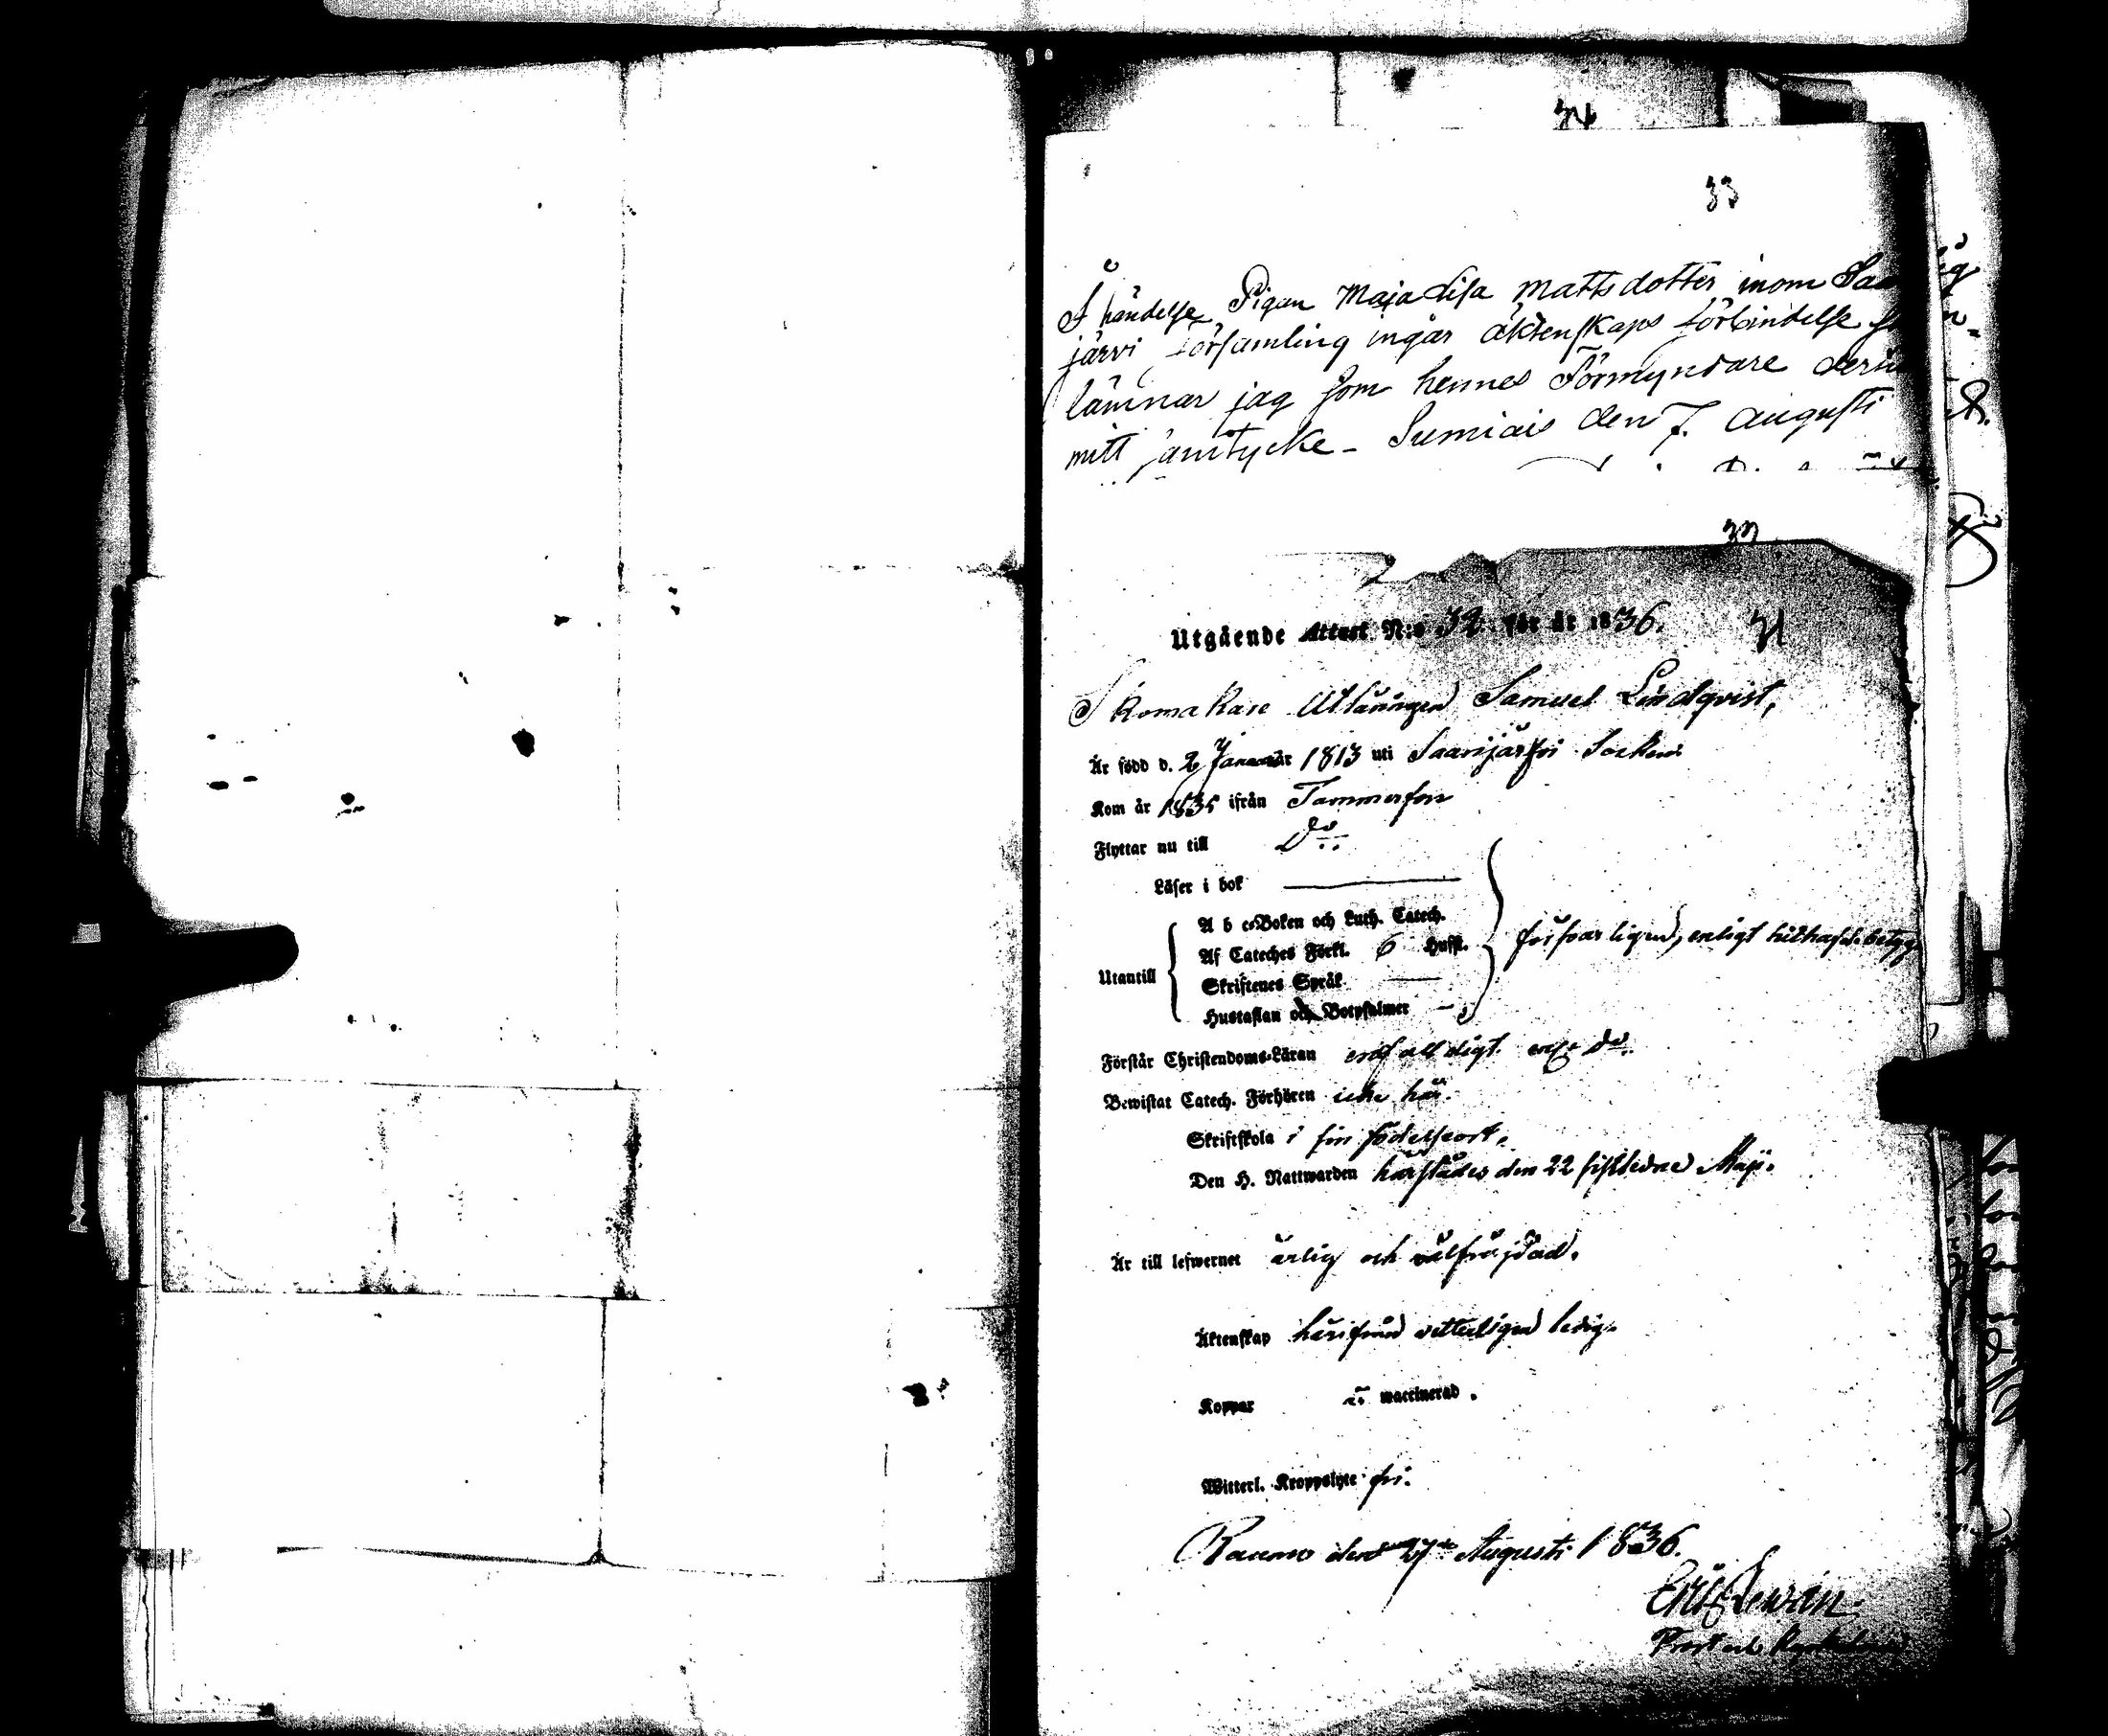 34
33
I händelse Pigan Maja Lisa Mattsdotter inom Saa
järvi församling ingår äktenskaps förbindelse
lämnar jag som hennes Förmyndare
mitt samtycke - Sumiais den 7. Augusti
Utgående Attest N:o 32 för år 1836.
31
Skomakare Utlärlingen Samuel Lindqvist,
Är född d. 2 Januar 1813 uti Saarijärfvi Socken
Kom år 1835 ifrån Tammerfors
Flyttar nu till Do
Läser i bok
Utantill
A b c-Boken och Luth. Catech.
Af Cateches Förkl. 6 Hufst.
Skriftenes Språk
Hustaflan och Botpsalmer
försvarligen, enligt hithafde betyg
Förstår Christendoms-Läran enfalldigt
Do
Bewistat Catech. Förhören icke här.
Skriftskola i sin födelseort.
Den H. Nattwarden härstädes den 22 sistledne Maji.
Är till lefwernet ärlig och välfräjdad.
Äktenskap härifrån vetterligen ledig.
Koppar waccinerad.
Witterl. Kroppslyte fri.
Raumo den 27 Augusti 1836.